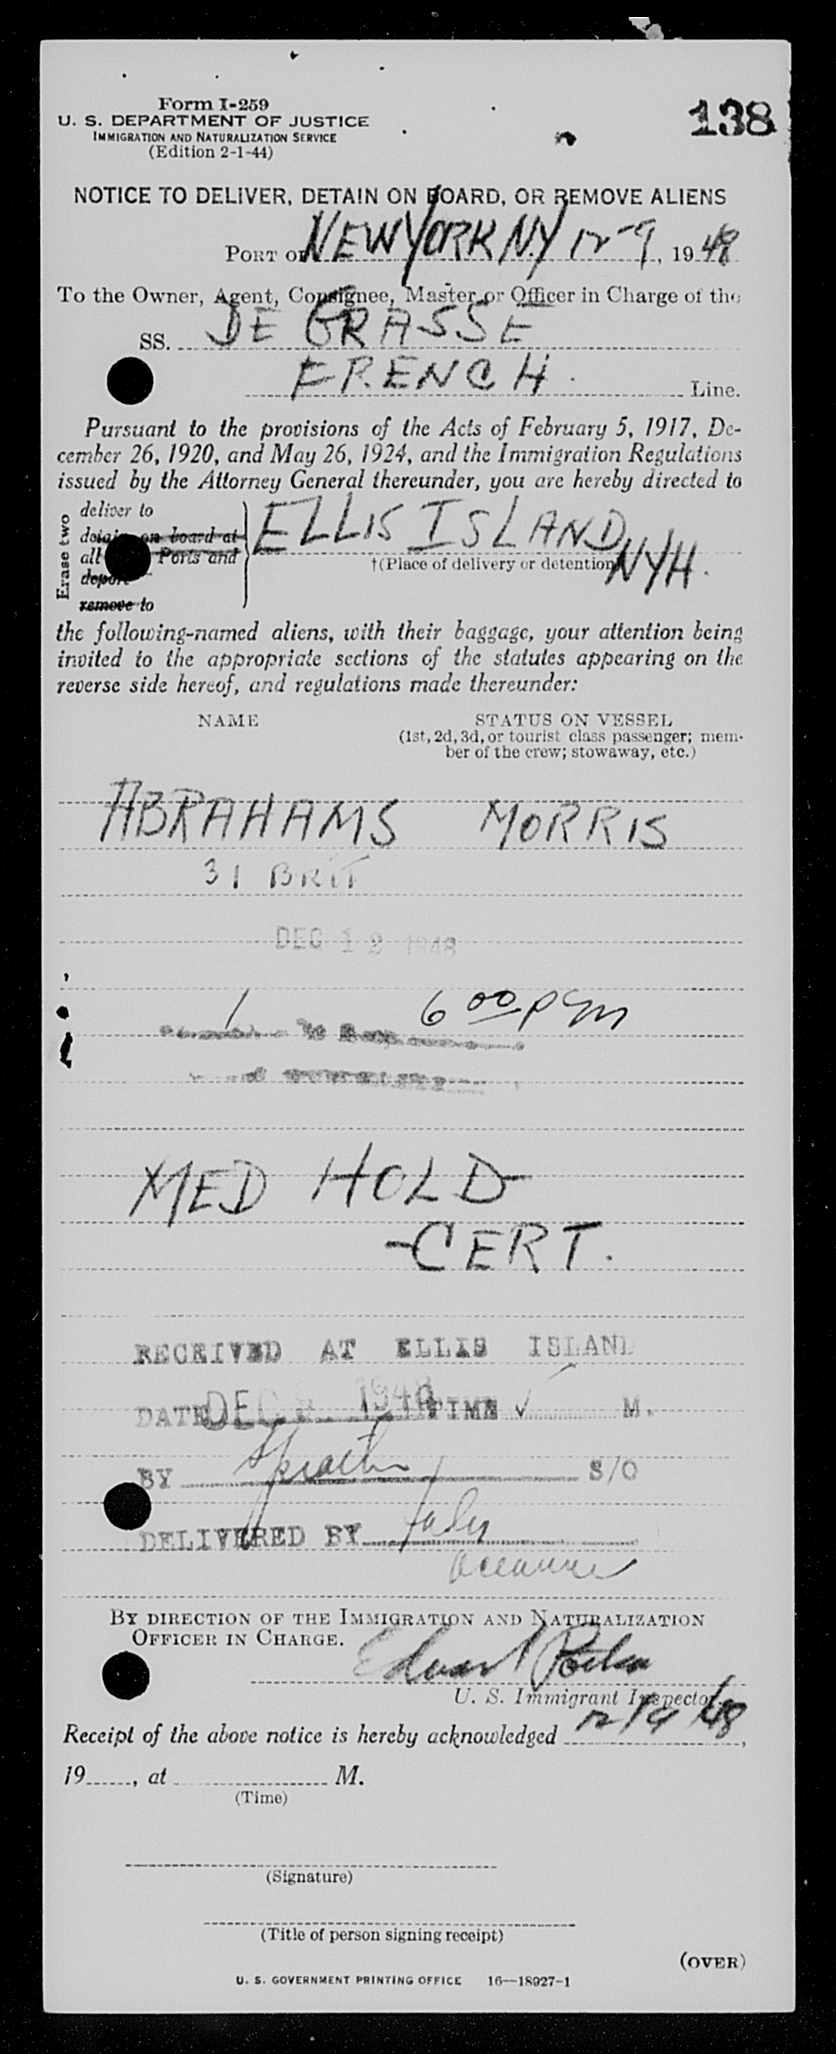 Form I-259
U. S. DEPARTMENT OF JUSTICE
IMMIGRATION AND NATURALIZATION SERVICE
(Edition 2-1-44)
138
NOTICE TO DELIVER, DETAIN ON BOARD, OR REMOVE ALIENS
PORT OF NEW YORK N.Y 12-9, 1948
To the Owner, Agent, Consignee, Master or Officer in Charge of the
SS. DE GRASSE
FRENCH Line.
Pursuant to the provisions of the Acts of February 5, 1917, De-
cember 26, 1920, and May 26, 1924, and the Immigration Regulations
issued by the Attorney General thereunder, you are hereby directed to
Erase two
deliver to
detain on board at
all Ports and
deport
remove to
ELLIS ISLAND
NYH.
†(Place of delivery or detention)
the following-named aliens, with their baggage, your attention being
invited to the appropriate sections of the statutes appearing on the
reverse side hereof, and regulations made thereunder:
NAME
STATUS ON VESSEL
(1st, 2d, 3d, or tourist class passenger; mem-
ber of the crew; stowaway, etc.)
ABRAHAMS MORRIS
31 BRIT
DEC 12 1948
1 6 00 pm
MED HOLD
-CERT.
RECEIVED AT ELLIS ISLAND
DATE DEC 9 1948 TIME ✓ M.
BY S/O
DELIVERED BY
BY DIRECTION OF THE IMMIGRATION AND NATURALIZATION
OFFICER IN CHARGE.
U. S. Immigrant Inspector.
Receipt of the above notice is hereby acknowledged 12/9/48,
19......, at M.
(Time)
(Signature)
(Title of person signing receipt)
(OVER)
U. S. GOVERNMENT PRINTING OFFICE 16—18927-1